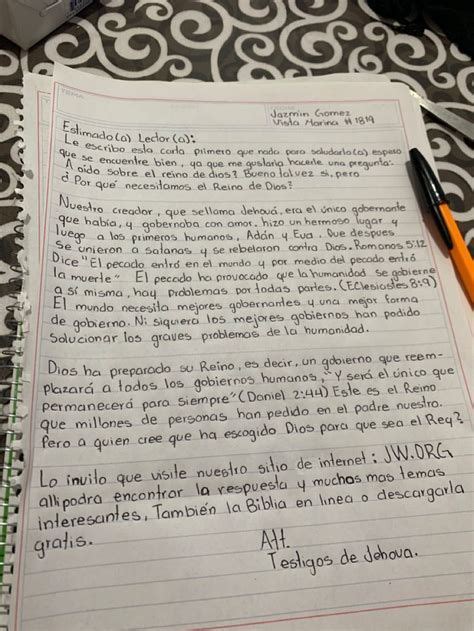 TEMA
Jazmin Gomez
Vista Marina # 1819
Estimado(a) Lector(a):
Le escribo esta carta primero que nada para saludarlo(a) espero
que se encuentre bien, ya que me gustaria hacerle una pregunta:
A oido sobre el reino de dios? Bueno tal vez si, pero
¿Por qué necesitamos el Reino de Dios?
Nuestro creador, que se llama Jehová, era el único gobernante
que había, y gobernaba con amor. hizo un hermoso lugar y
luego a los primeros humanos, Adán y Eva. Due despues
se unieron a satanas y se rebelaron contra Dios. Romanos 5:12
Dice "El pecado entró en el mundo y por medio del pecado entró
la muerte" El pecado ha provocado que la humanidad se gobierne
a sí misma, hay problemas por todas partes. (Eclesiastes 8:9)
El mundo necesita mejores gobernantes y una mejor forma
de gobierno. Ni siquiera los mejores gobiernos han podido
solucionar los graves problemas de la humanidad.
Dios ha preparado su Reino, es decir, un gobierno que reem-
plazará a todos los gobiernos humanos, "Y será el único que
permanecerá para siempre" (Daniel 2:44) Este es el Reino
que millones de personas han pedido en el padre nuestro.
Pero a quien cree que ha escogido Dios para que sea el Rey?
Lo invito que visite nuestro sitio de internet: JW.ORG
alli podra encontrar la respuesta y muchos mas temas
interesantes, También la Biblia en linea o descargarla
gratis.
Att.
Testigos de Jehova.